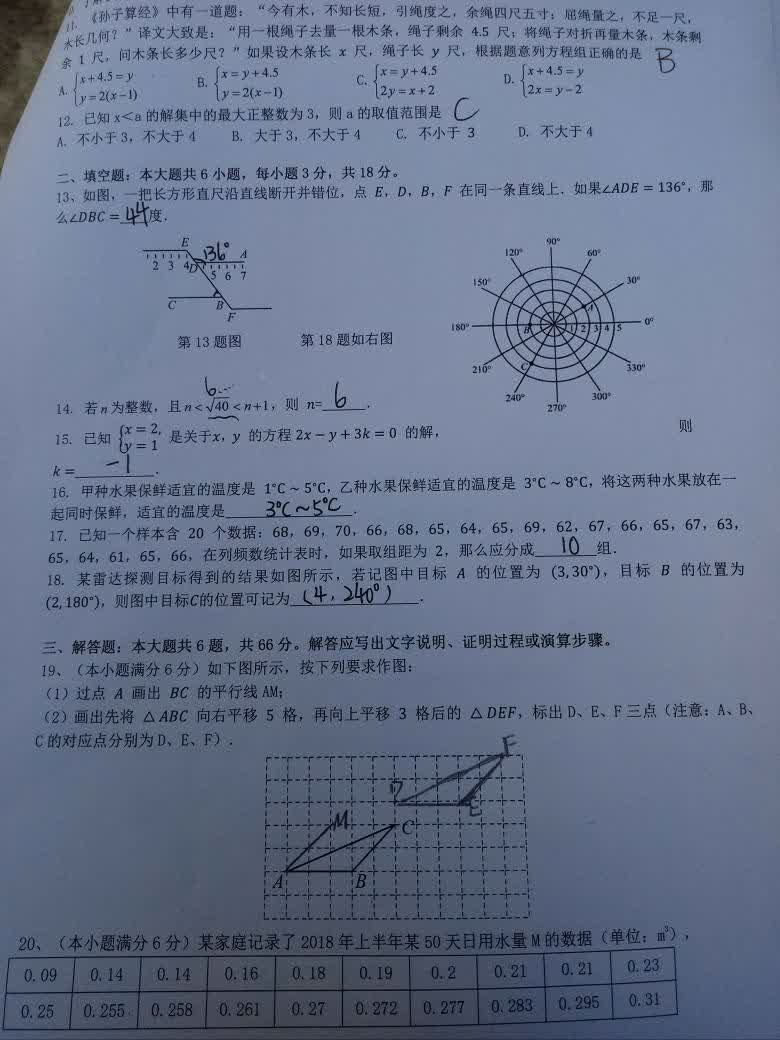 11. 《孙子算经》中有一道题：“今有木，不知长短，引绳度之，余绳四尺五寸；屈绳量之，不足一尺，
木长几何？”译文大致是：“用一根绳子去量一根木条，绳子剩余 4.5 尺；将绳子对折再量木条，木条剩
余 1 尺，问木条长多少尺？”如果设木条长 x 尺，绳子长 y 尺，根据题意列方程组正确的是 B
A. {x+4.5=y B. {x=y+4.5 C. {x=y+4.5 D. {x+4.5=y
y=2(x-1) y=2(x-1) 2y=x+2 2x=y-2
12. 已知 x＜a 的解集中的最大正整数为 3，则 a 的取值范围是 C
A. 不小于 3，不大于 4 B. 大于 3，不大于 4 C. 不小于 3 D. 不大于 4
二、填空题：本大题共 6 小题，每小题 3 分，共 18 分。
13、如图，一把长方形直尺沿直线断开并错位，点 E，D，B，F 在同一条直线上．如果∠ADE = 136°，那
么∠DBC = 44 度．
E 136° A
2 3 4 D 5 6 7
C B
F
90°
120° 60°
150° 30°
A
180° B 1 2 3 4 5 0°
C
210° 330°
240° 300°
270°
第 13 题图 第 18 题如右图
6...
14. 若 n 为整数，且 n < √40 < n+1，则 n= 6 ．
15. 已知 {x = 2, y = 1 是关于x，y 的方程 2x − y + 3k = 0 的解， 则
k = -1 ．
16. 甲种水果保鲜适宜的温度是 1°C ~ 5°C，乙种水果保鲜适宜的温度是 3°C ~ 8°C，将这两种水果放在一
起同时保鲜，适宜的温度是 3°C~5°C ．
17. 已知一个样本含 20 个数据：68，69，70，66，68，65，64，65，69，62，67，66，65，67，63，
65，64，61，65，66，在列频数统计表时，如果取组距为 2，那么应分成 10 组．
18. 某雷达探测目标得到的结果如图所示，若记图中目标 A 的位置为 (3, 30°)，目标 B 的位置为
(2, 180°)，则图中目标C的位置可记为 (4, 240°) ．
三、解答题：本大题共 6 题，共 66 分。解答应写出文字说明、证明过程或演算步骤。
19、（本小题满分 6 分）如下图所示，按下列要求作图：
（1）过点 A 画出 BC 的平行线 AM;
（2）画出先将 △ABC 向右平移 5 格，再向上平移 3 格后的 △DEF，标出 D、E、F 三点（注意：A、B、
C 的对应点分别为 D、E、F）．
F
D E
M C
A B
20、（本小题满分 6 分）某家庭记录了 2018 年上半年某 50 天日用水量 M 的数据（单位：m³），
0.09 0.14 0.14 0.16 0.18 0.19 0.2 0.21 0.21 0.23
0.25 0.255 0.258 0.261 0.27 0.272 0.277 0.283 0.295 0.31